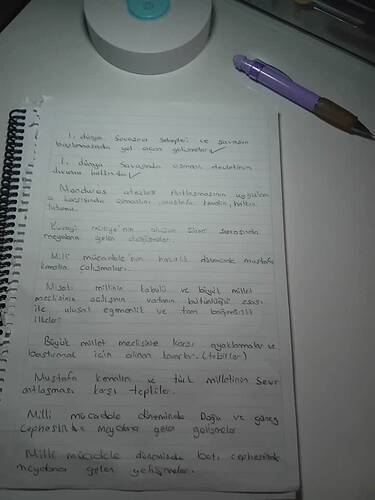 1. dünya Savaşına sebepleri ve savaşın
başlamasında yol açan gelişmeler ✓
1. dünya Savaşında osmanlı devletinin
durumu hakkında ✓
Mondros ateşkes Antlaşmasının uygulama
karşısında osmanlının, mustafa kemalin, halkın
tutumu.
Kuvayi milliye'nin oluşum süreci sırasında
meydana gelen gelişmeler.
Milli mücadele'nin hazırlık döneminde mustafa
kemalin çalışmaları.
Misakı millinin kabulü ve büyük millet
meclisinin açılışının vatanın bütünlüğü esası
ile ulusal egemenlik ve tam bağımsızlık
ilkeleri
Büyük millet meclisine karşı ayaklanmalar ve
bastırmak için alınan kararlar. (tedbirler)
Mustafa kemalin ve türk milletinin Sevr
antlaşması karşı tepkiler.
Milli mücadele döneminde Doğu ve güney
cephesinde meydana gelen gelişmeler
Milli mücadele döneminde batı cephesinde
meydana gelen gelişmeler.